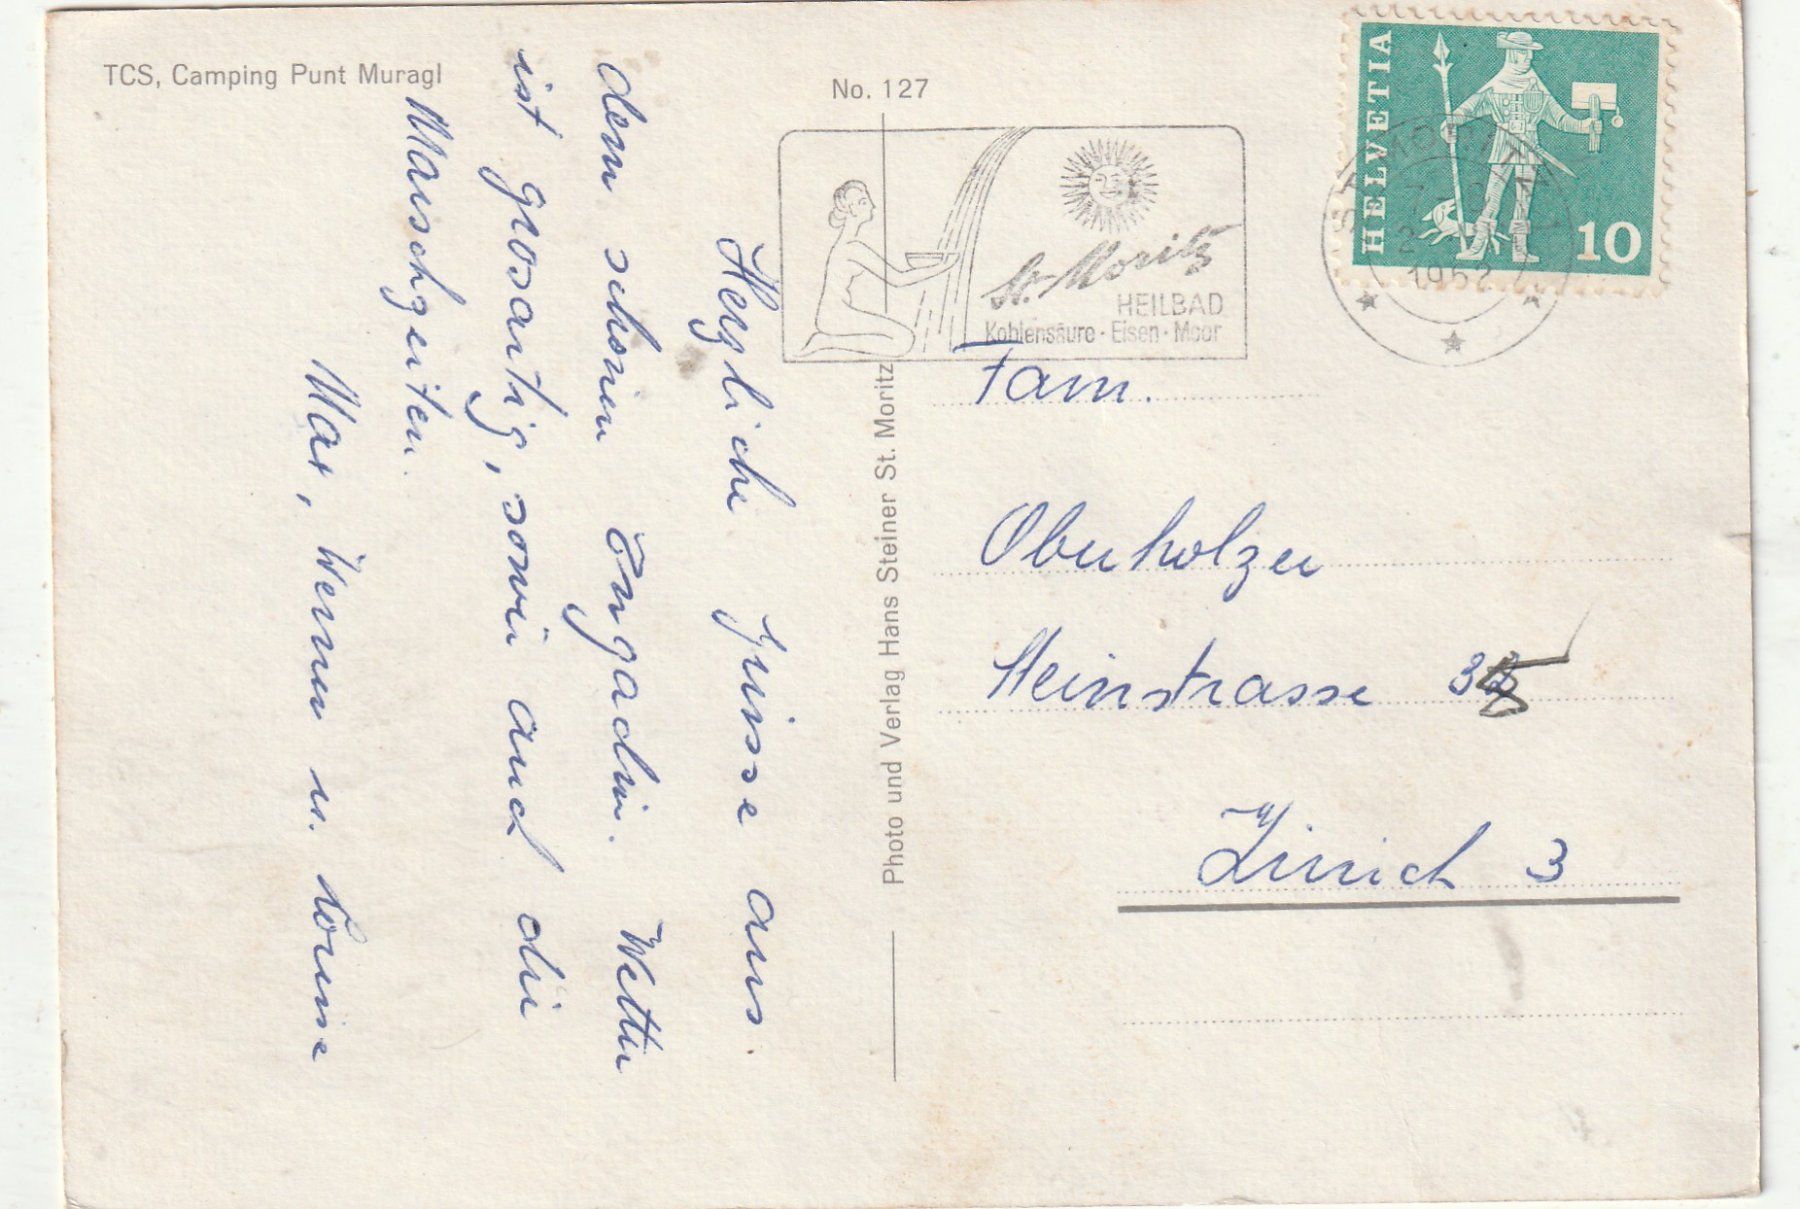 TCS, Camping Punt Muragl
No. 127
HELVETIA
10
ST. MORITZ
1962
St. Moritz
HEILBAD
Kohlensäure · Eisen · Moor
Photo und Verlag Hans Steiner St. Moritz
Herzliche Grüsse aus
dem schönen Engadin. Wetter
ist grosartig, sowie auch die
Marschzeiten.
Max, Werner u. Louise
Fam.
Oberholzer
Steinstrasse
Zürich 3